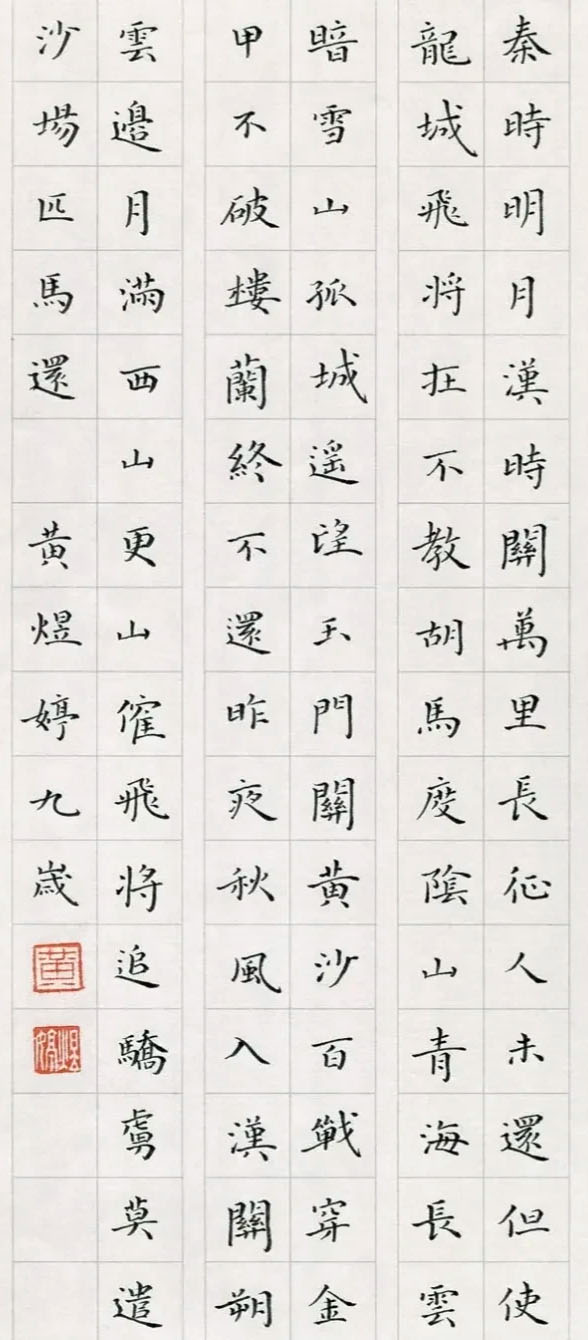 秦時明月漢時關萬里長征人未還但使
龍城飛将在不教胡馬度陰山青海長雲
暗雪山孤城遥望玉門關黄沙百戰穿金
甲不破樓蘭終不還昨夜秋風入漢關朔
雲邊月滿西山更山傕飛将追驕虜莫遣
沙場匹馬還 黄煜婷九歲
黄
煜婷